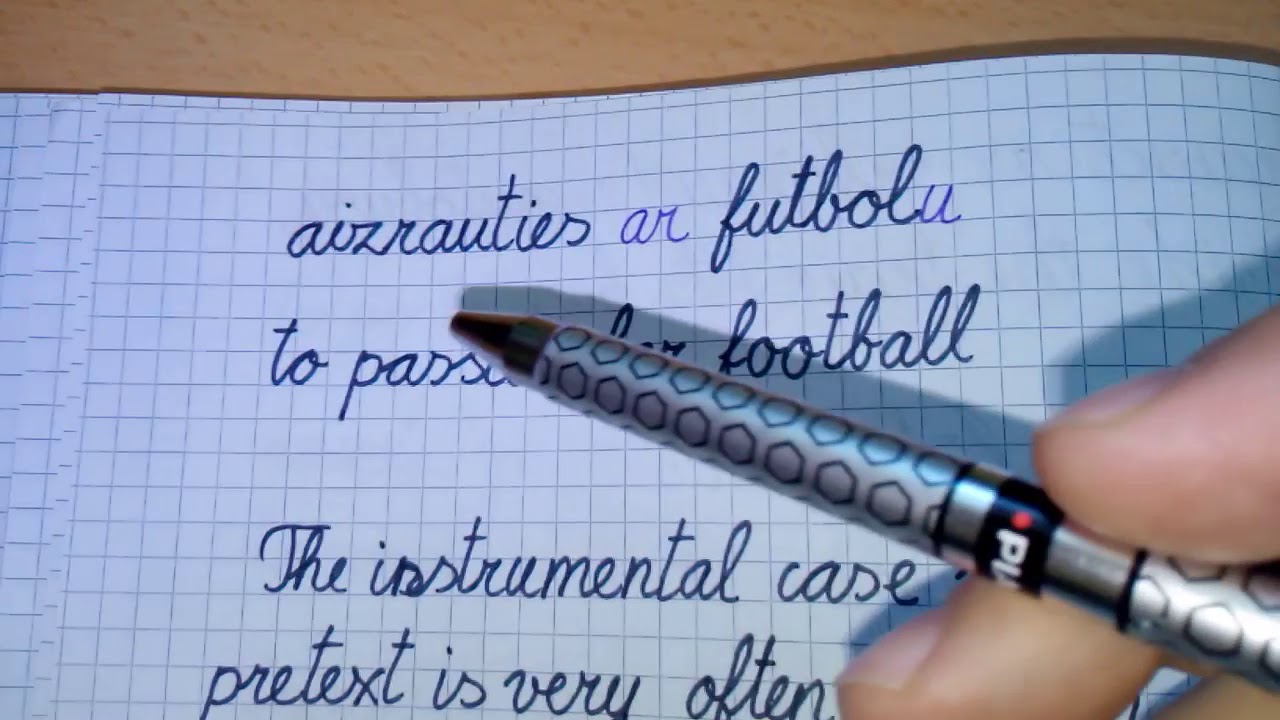 aizrauties ar futbolu
to football
The instrumental case
pretext is very often